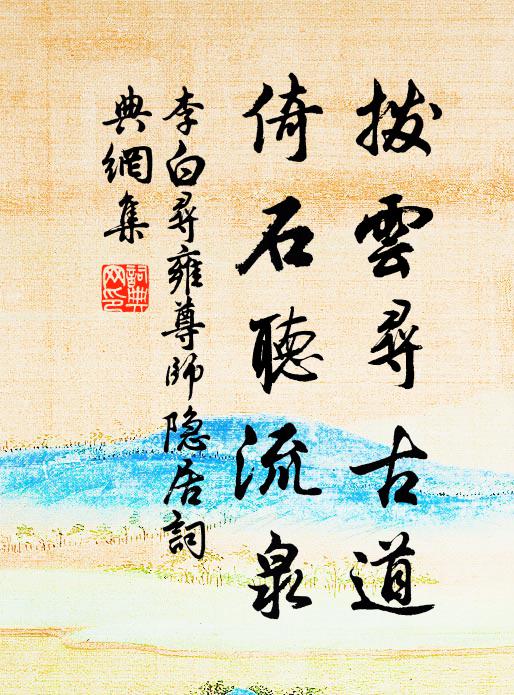 拨雲尋古道
倚石聽流泉
李白尋雍尊師隐居詞
典網集
詞典網印